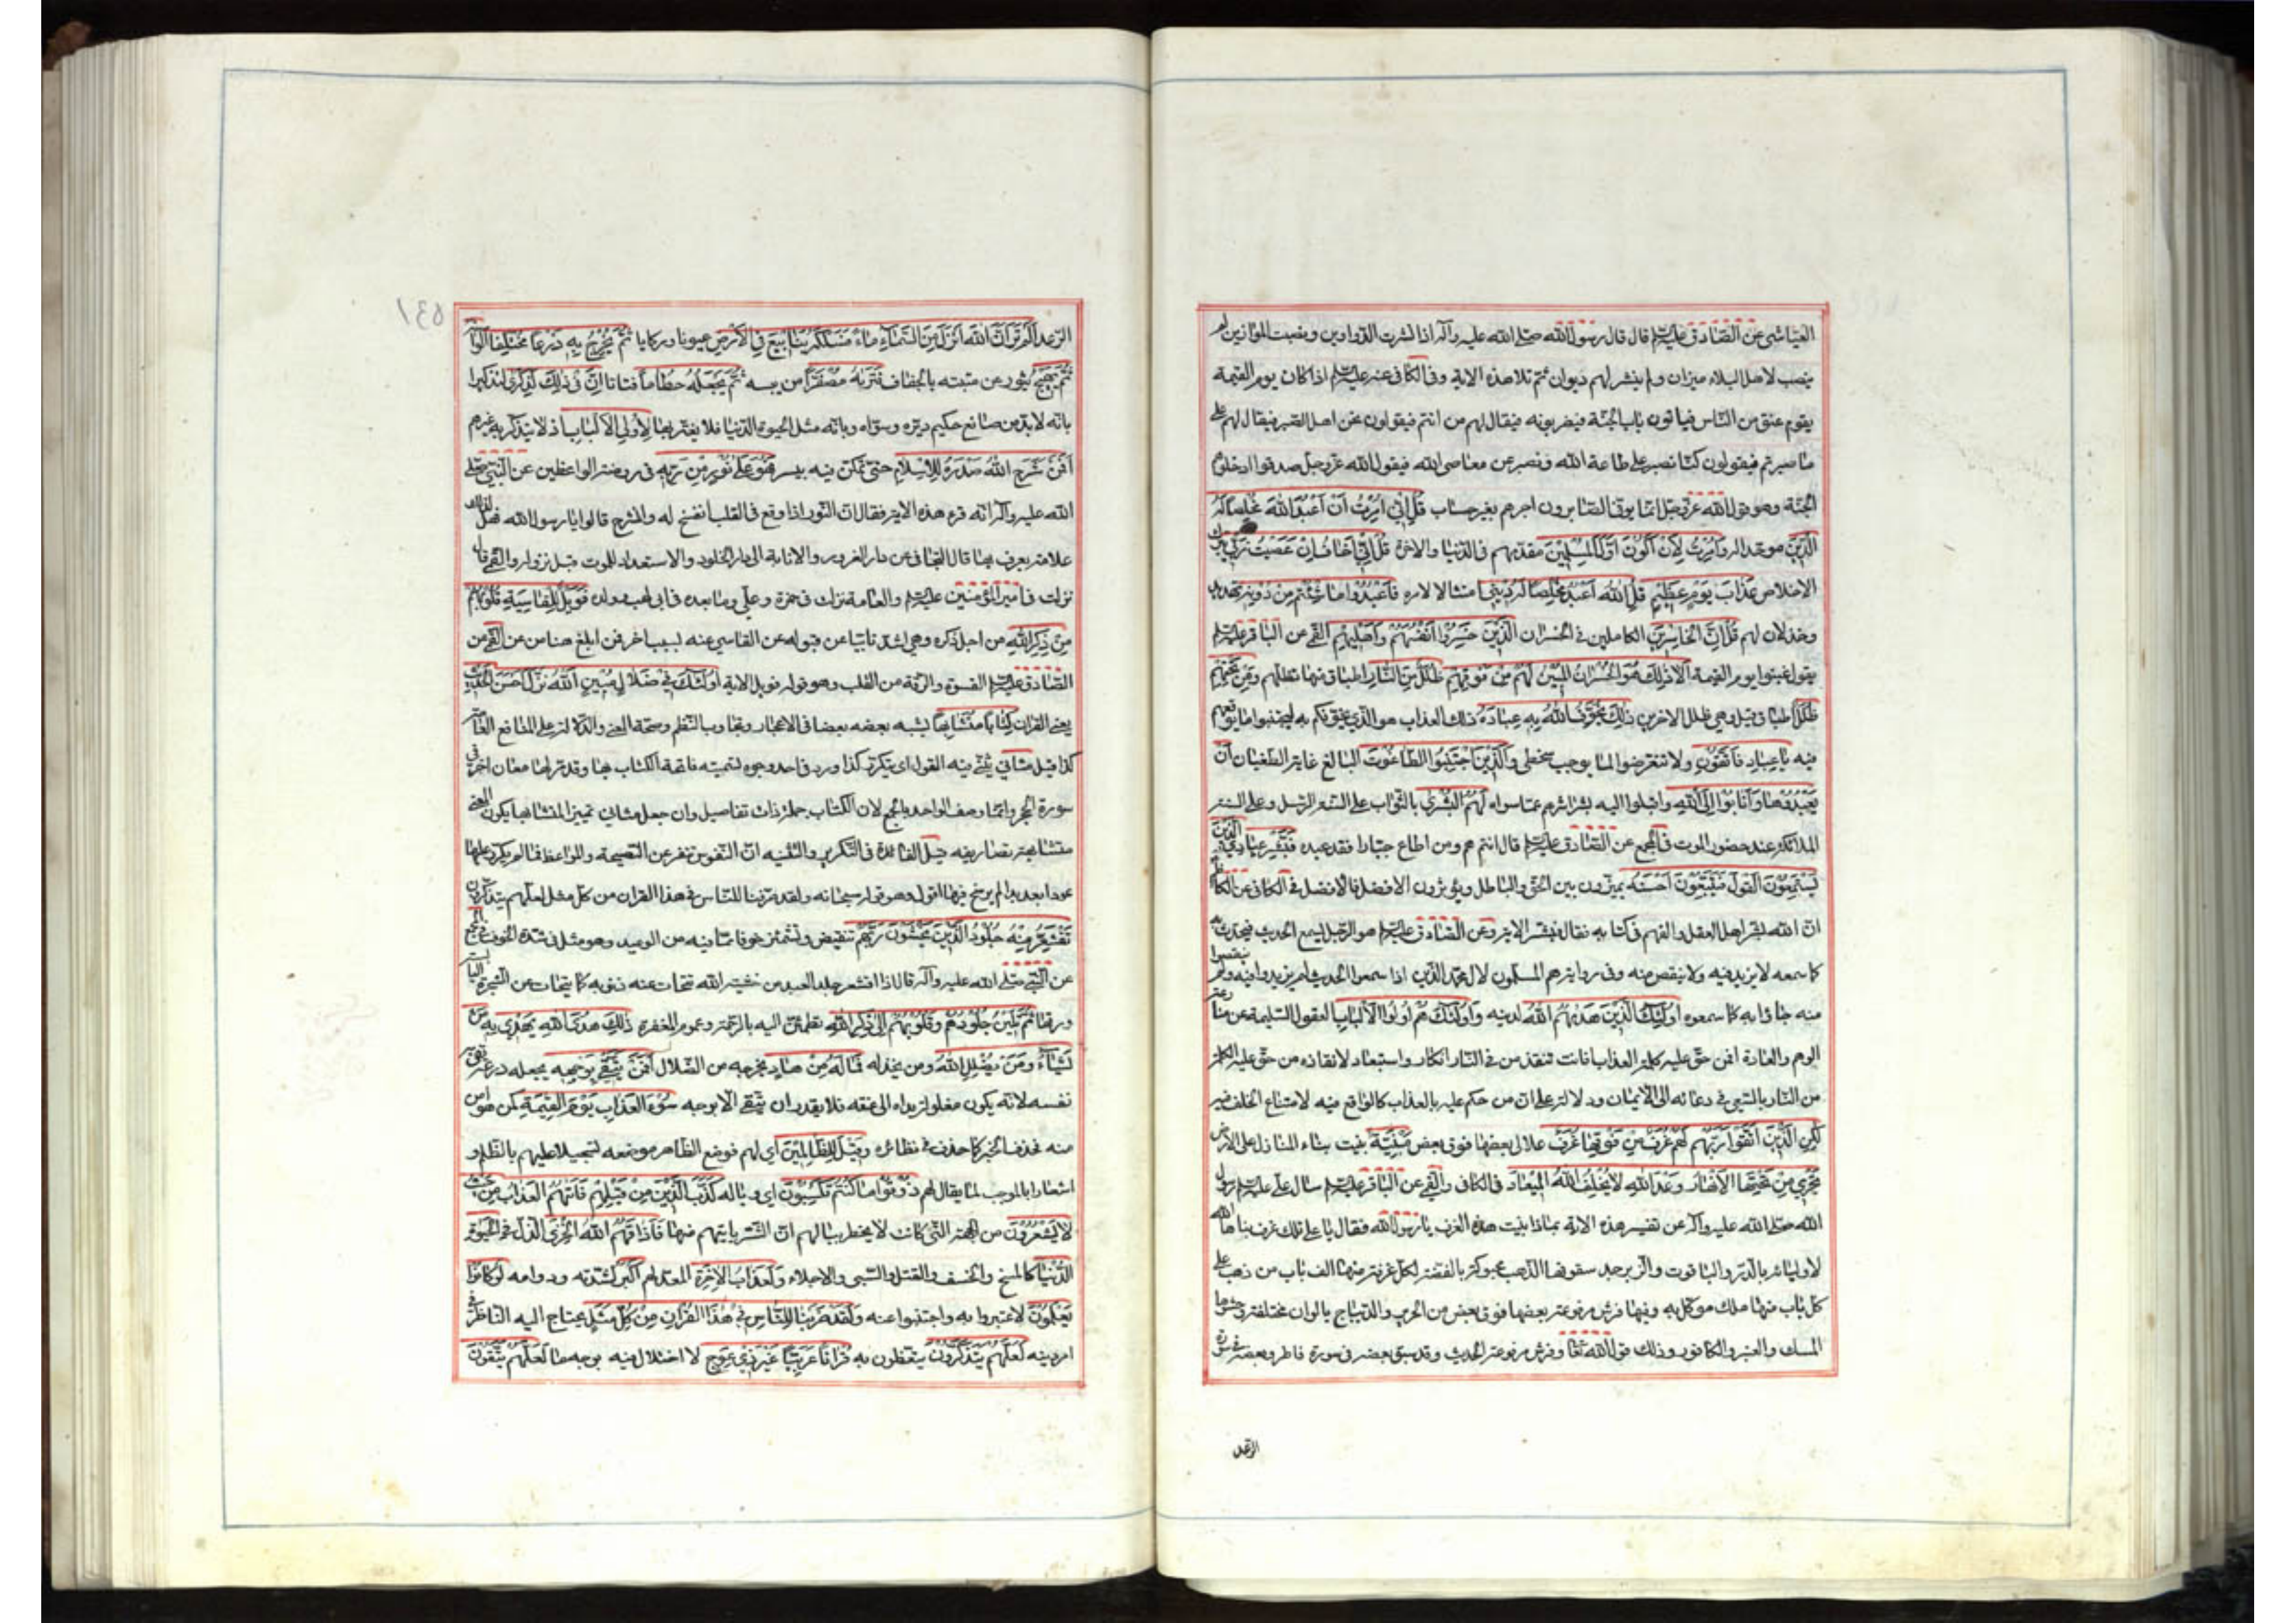 العیاشی عن الصّادق علیه السلم قال قال رسول الله صلی الله علیه وآله اذا نشرت الدّواوین ونصبت الموازین لم
ینصب لاهل البلاء میزان ولم ینشر لهم دیوان ثمّ تلا هذه الایة وفی الکافی عنه علیه السلم اذا کان یوم القیمة
یقوم عنق من النّاس فیاتون باب الجنّة فیضربونه فیقال لهم من انتم فیقولون نحن اهل الصّبر فیقال لهم علی
ما صبرتم فیقولون کنّا نصبر علی طاعة الله ونصبر عن معاصی الله فیقول الله عزّ وجلّ صدقوا ادخلوهم
الجنّة وهو قول الله عزّ وجلّ انّما یوفّی الصّابرون اجرهم بغیر حساب قُلْ اِنِّی اُمِرْتُ اَنْ اَعْبُدَ اللهَ مُخْلِصاً لَهُ
الدِّینَ موحّدا له وَاُمِرْتُ لِاَنْ اَکُونَ اَوَّلَ الْمُسْلِمِینَ مقدّمهم فی الدّنیا والاخرة قُلْ اِنِّی اَخَافُ اِنْ عَصَیْتُ رَبِّی بترک
الاخلاص عَذَابَ یَوْمٍ عَظِیْمٍ قُلِ اللهَ اَعْبُدُ مُخْلِصاً لَهُ دِینِی امتثالا لامره فَاعْبُدُوا مَا شِئْتُمْ مِنْ دُونِهِ تهدید
وخذلان لهم قُلْ اِنَّ الْخَاسِرِینَ الکاملین فی الخسران الَّذِینَ خَسِرُوا اَنْفُسَهُمْ وَاَهْلِیهِمْ القمّی عن الباقر علیه السلم
یقول غبنوا یوم القیمة اَلَا ذٰلِکَ هُوَ الْخُسْرَانُ الْمُبِینُ لَهُمْ مِنْ فَوْقِهِمْ ظُلَلٌ مِنَ النَّارِ اطباق منها تظلّهم وَمِنْ تَحْتِهِمْ
ظُلَلٌ اطباق قیل وهی ظلل الاخرین ذٰلِکَ یُخَوِّفُ اللهُ بِهِ عِبَادَهُ ذلک العذاب هو الّذی یخوّفکم به لیجتنبوا ما یوقعهم
فیه یَا عِبَادِ فَاتَّقُونِ ولا تتعرّضوا لما یوجب سخطی وَالَّذِینَ اجْتَنَبُوا الطَّاغُوتَ البالغ غایة الطّغیان اَنْ
یَعْبُدُوهَا وَاَنَابُوا اِلَی اللهِ واقبلوا الیه بشراشرهم عمّا سواه لَهُمُ الْبُشْرَی بالثّواب علی السنة الرّسل وعلی السنة
الملائکة عند حضور الموت فی المجمع عن الصّادق علیه السلم قال انتم هم ومن اطاع جبّارا فقد عبده فَبَشِّرْ عِبَادِ الَّذِینَ
یَسْتَمِعُونَ الْقَوْلَ فَیَتَّبِعُونَ اَحْسَنَهُ یمیّزون بین الحقّ والباطل ویؤثرون الافضل فالافضل فی الکافی عن الکاظم
انّ الله بشّر اهل العقل والفهم فی کتابه فقال فبشّر الایة وعن الصّادق علیه السلم هو الرّجل یسمع الحدیث فیحدّث به
کما سمعه لا یزید فیه ولا ینقص منه وفی روایة هم المسلّمون لال محمّد الّذین اذا سمعوا الحدیث لم یزیدوا فیه ولم ینقصوا
منه جاؤا به کما سمعوه اُولٰئِکَ الَّذِینَ هَدٰیهُمُ اللهُ لدینه وَاُولٰئِکَ هُمْ اُولُوا الْاَلْبَابِ العقول السّلیمة عن منازعة
الوهم والعادة افمن حقّ علیه کلمة العذاب افانت تنقذ من فی النّار انکار واستبعاد لانقاذه من حقّ علیه الکلمة
من النّار بالسّعی فی دعائه الی الایمان ودلالة علی انّ من حکم علیه بالعذاب کالواقع فیه لامتناع الخلف فیه
لٰکِنِ الَّذِینَ اتَّقَوْا رَبَّهُمْ لَهُمْ غُرَفٌ مِنْ فَوْقِهَا غُرَفٌ علالی بعضها فوق بعض مَبْنِیَّةٌ بنیت بناء المنازل علی الارض
تَجْرِی مِنْ تَحْتِهَا الْاَنْهَارُ وَعْدَ اللهِ لَا یُخْلِفُ اللهُ الْمِیعَادَ فی الکافی والقمّی عن الباقر علیه السلم سال علی علیه السلم رسول
الله صلی الله علیه وآله عن تفسیر هذه الایة بماذا بنیت هذه الغرف یا رسول الله فقال یا علی تلک غرف بناها الله
لاولیائه بالدّرّ والیاقوت والزّبرجد سقوفها الذّهب محبوکة بالفضّة لکلّ غرفة منها الف باب من ذهب علی
کلّ باب منها ملک موکّل به وفیها فرش مرفوعة بعضها فوق بعض من الحریر والدّیباج بالوان مختلفة وحشوها
المسک والعنبر والکافور وذلک قول الله تعالی وفرش مرفوعة الحدیث وقد سبق بعضه فی سورة فاطر وبعضه فی سورة
الرّعد
١٤٥
الرّعد اَلَمْ تَرَ اَنَّ اللهَ اَنْزَلَ مِنَ السَّمَآءِ مَاءً فَسَلَکَهُ یَنَابِیعَ فِی الْاَرْضِ عیونا ورکایا ثُمَّ یُخْرِجُ بِهِ زَرْعاً مُخْتَلِفاً اَلْوَانُهُ
ثُمَّ یَهِیجُ یثور عن منبته بالجفاف فَتَرٰیهُ مُصْفَرّاً من یبسه ثُمَّ یَجْعَلُهُ حُطَاماً فتاتا اِنَّ فِی ذٰلِکَ لَذِکْرٰی لتذکیرا
بانّه لا بدّ من صانع حکیم دبّره وسوّاه وبانّه مثل الحیوة الدّنیا فلا یغترّ بها لِاُولِی الْاَلْبَابِ اذ لا یتذکّر به غیرهم
اَفَمَنْ شَرَحَ اللهُ صَدْرَهُ لِلْاِسْلَامِ حتّی تمکّن فیه بیسر فَهُوَ عَلٰی نُورٍ مِنْ رَبِّهِ فی روضة الواعظین عن النّبی صلی
الله علیه وآله انّه قرء هذه الایة فقال انّ النّور اذا وقع فی القلب انفسح له وانشرح قالوا یا رسول الله فهل لذلک
علامة یعرف بها قال التّجافی عن دار الغرور والانابة الی دار الخلود والاستعداد للموت قبل نزوله والقمّی قال
نزلت فی امیر المؤمنین علیه السلم والعامة نزلت فی حمزة وعلی وما بعده فی ابی لهب وولده فَوَیْلٌ لِلْقَاسِیَةِ قُلُوبُهُمْ
مِنْ ذِکْرِ اللهِ من اجل ذکره وهی اشد تابّیا عن قبوله عن القاسی عنه لسبب اخر فمن ابلغ هنا من عن القمّی عن
الصّادق علیه السلم القسوة والرّقة من القلب وهو قوله فویل الایة اُولٰئِکَ فِی ضَلَالٍ مُبِینٍ اَللهُ نَزَّلَ اَحْسَنَ الْحَدِیثِ
یعنی القران کِتَاباً مُتَشَابِهاً یشبه بعضه بعضا فی الاعجاز وتجاوب النّظم وصحّة المعنی والدّلالة علی المنافع العامّة
کذا قیل مَثَانِیَ یثنّی فیه القول ای یتکرّر کذا ورد فی احد وجوه تسمیته فاتحة الکتاب بها وقد مرّ لها معان اخر فی
سورة الحجر وانّما وصف الواحد بالجمع لان الکتاب جملة ذات تفاصیل وان جعل مثانی تمییزا لمتشابها یکون المعنی
متشابهة تصاریفه قیل الفائدة فی التّکریر والتّثنیة انّ النّفوس تنفر عن النّصیحة والمواعظ فما لم یکرّر علیها
عودا بعد بدا لم یرسخ فیها اقول وهو قوله سبحانه ولقد صرّفنا للنّاس فی هذا القران من کلّ مثل لعلّهم یتذکّرون
تَقْشَعِرُّ مِنْهُ جُلُودُ الَّذِینَ یَخْشَوْنَ رَبَّهُمْ تنقبض وتشمئز خوفا ممّا فیه من الوعید وهو مثل فی شدّة الخوف فی المجمع
عن النّبی صلی الله علیه وآله قال اذا اقشعر جلد العبد من خشیة الله تتحاتّ عنه ذنوبه کما یتحاتّ عن الشّجرة الیابسة
ورقها ثُمَّ تَلِینُ جُلُودُهُمْ وَقُلُوبُهُمْ اِلٰی ذِکْرِ اللهِ تطمئنّ الیه بالرّحمة وعموم المغفرة ذٰلِکَ هُدَی اللهِ یَهْدِی بِهِ مَنْ
یَشَآءُ وَمَنْ یُضْلِلِ اللهُ ومن یخذله فَمَا لَهُ مِنْ هَادٍ یخرجه من الضّلال اَفَمَنْ یَتَّقِی بِوَجْهِهِ یجعله درقة یقی به
نفسه لانّه یکون مغلولة یداه الی عنقه فلا یقدر ان یتّقی الا بوجهه سُوءَ الْعَذَابِ یَوْمَ الْقِیٰمَةِ کمن هو امن
منه فحذف الخبر کما حذف فی نظائره وَقِیلَ لِلظَّالِمِینَ ای لهم فوضع الظّاهر موضعه تسجیلا علیهم بالظّلم و
اشعارا بالموجب لما یقال لهم ذُوقُوا مَا کُنْتُمْ تَکْسِبُونَ ای وباله کَذَّبَ الَّذِینَ مِنْ قَبْلِهِمْ فَاَتٰهُمُ الْعَذَابُ مِنْ حَیْثُ
لَا یَشْعُرُونَ من الجهة الّتی کانت لا یخطر ببالهم انّ الشّر یاتیهم منها فَاَذَاقَهُمُ اللهُ الْخِزْیَ الذّل فِی الْحَیٰوةِ
الدُّنْیَا کالمسخ والخسف والقتل والسّبی والاجلاء وَلَعَذَابُ الْاٰخِرَةِ المعد لهم اَکْبَرُ لشدّته ودوامه لَوْ کَانُوا
یَعْلَمُونَ لاعتبروا به واجتنبوا عنه وَلَقَدْ ضَرَبْنَا لِلنَّاسِ فِی هٰذَا الْقُرْاٰنِ مِنْ کُلِّ مَثَلٍ یحتاج الیه النّاظر فی
امر دینه لَعَلَّهُمْ یَتَذَکَّرُونَ یتّعظون به قُرْاٰناً عَرَبِیّاً غَیْرَ ذِی عِوَجٍ لا اختلال فیه بوجه ما لَعَلَّهُمْ یَتَّقُونَ